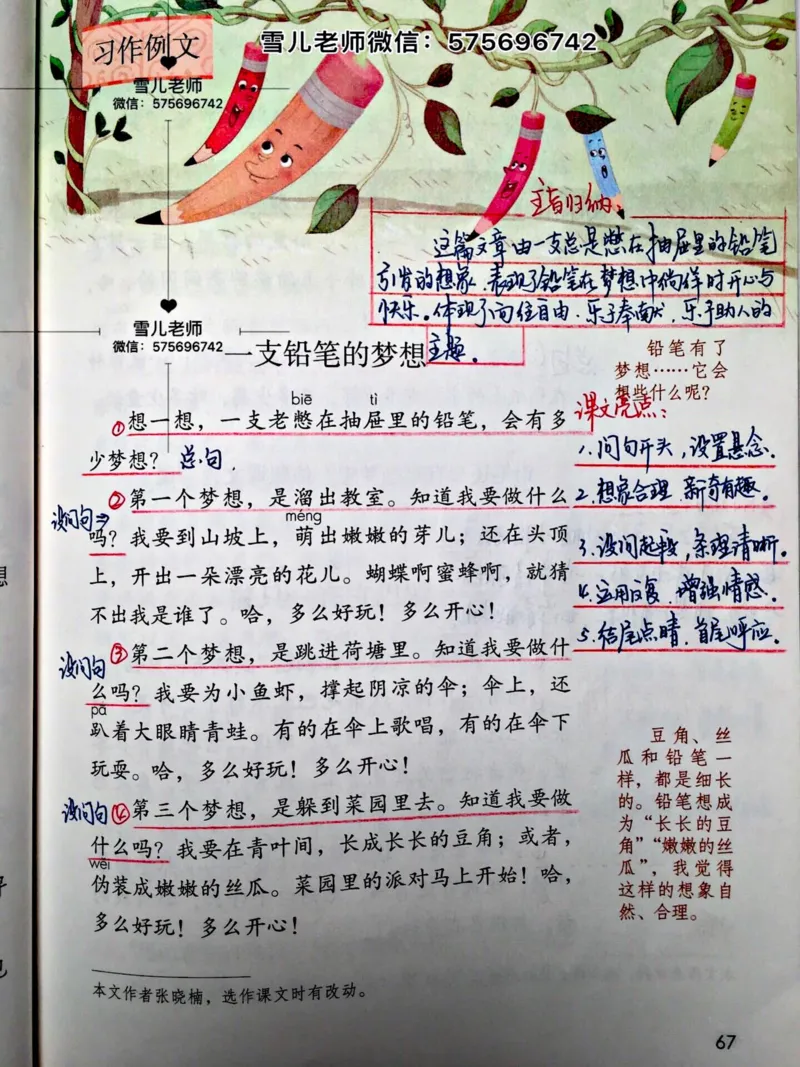 习作例文
雪儿老师微信：575696742
雪儿老师
微信：575696742
主旨归纳：
这篇文章由一支总是憋在抽屉里的铅笔
引发的想象，表现了铅笔在梦想中徜徉时开心与
快乐。体现了向往自由、乐于奉献、乐于助人的
主题。
雪儿老师
微信：575696742
一支铅笔的梦想
铅笔有了
梦想……它会
想些什么呢？
biē tì
①想一想，一支老憋在抽屉里的铅笔，会有多
少梦想？ 总句.
课文亮点：
1.问句开头，设置悬念。
2.想象合理，新奇有趣。
3.设问起段，条理清晰。
4.运用反复，增强情感。
5.结尾点睛，首尾呼应。
②第一个梦想，是溜出教室。知道我要做什么
设问句
méng
吗？我要到山坡上，萌出嫩嫩的芽儿；还在头顶
上，开出一朵漂亮的花儿。蝴蝶啊蜜蜂啊，就猜
不出我是谁了。哈，多么好玩！多么开心！
③第二个梦想，是跳进荷塘里。知道我要做什
设问句
么吗？我要为小鱼虾，撑起阴凉的伞；伞上，还
pā
趴着大眼睛青蛙。有的在伞上歌唱，有的在伞下
玩耍。哈，多么好玩！多么开心！
设问句
④第三个梦想，是躲到菜园里去。知道我要做
什么吗？我要在青叶间，长成长长的豆角；或者，
wěi
伪装成嫩嫩的丝瓜。菜园里的派对马上开始！哈，
多么好玩！多么开心！
豆角、丝
瓜和铅笔一
样，都是细长
的。铅笔想成
为“长长的豆
角”“嫩嫩的丝
瓜”，我觉得
这样的想象自
然、合理。
本文作者张晓楠，选作课文时有改动。
67